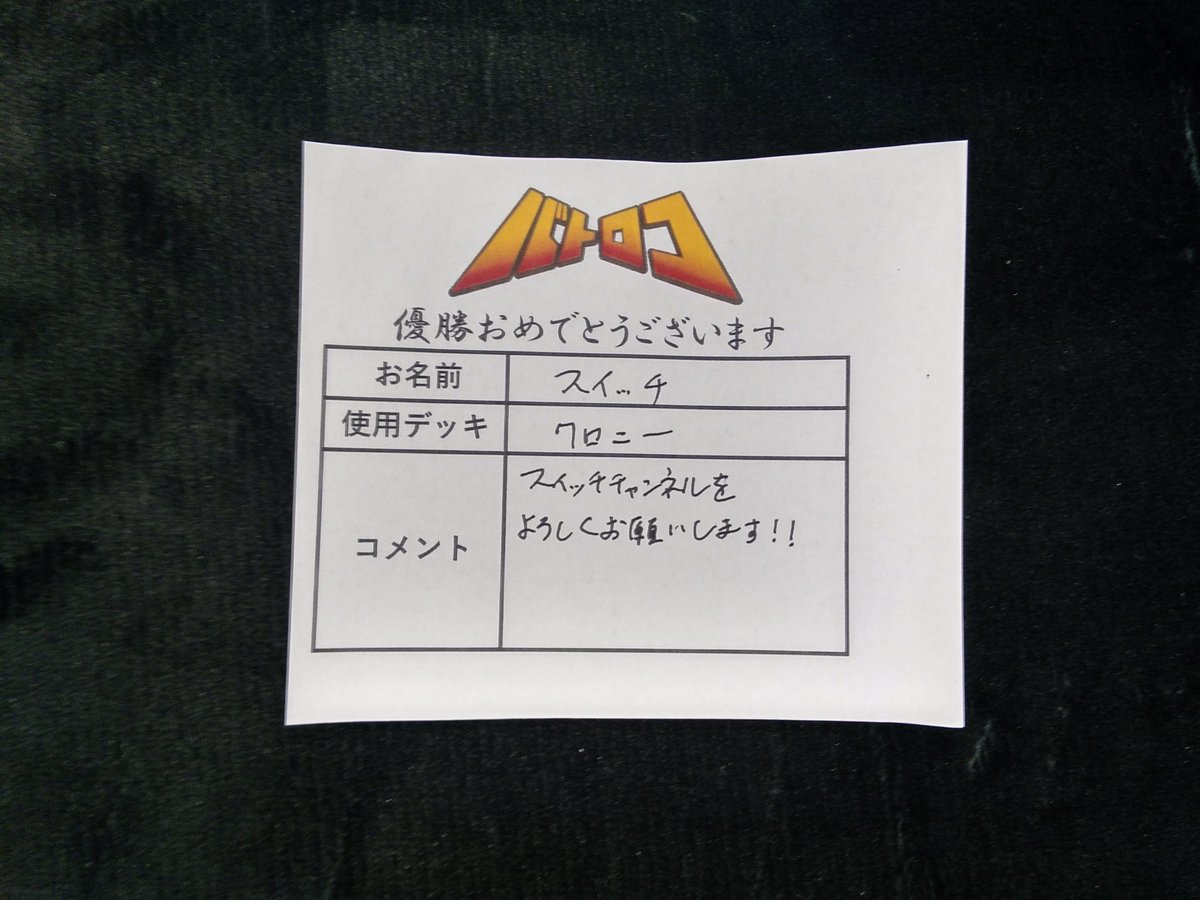 バトロコ
優勝おめでとうございます
お名前 スイッチ
使用デッキ クロニー
コメント スイッチチャンネルを
よろしくお願いします!!